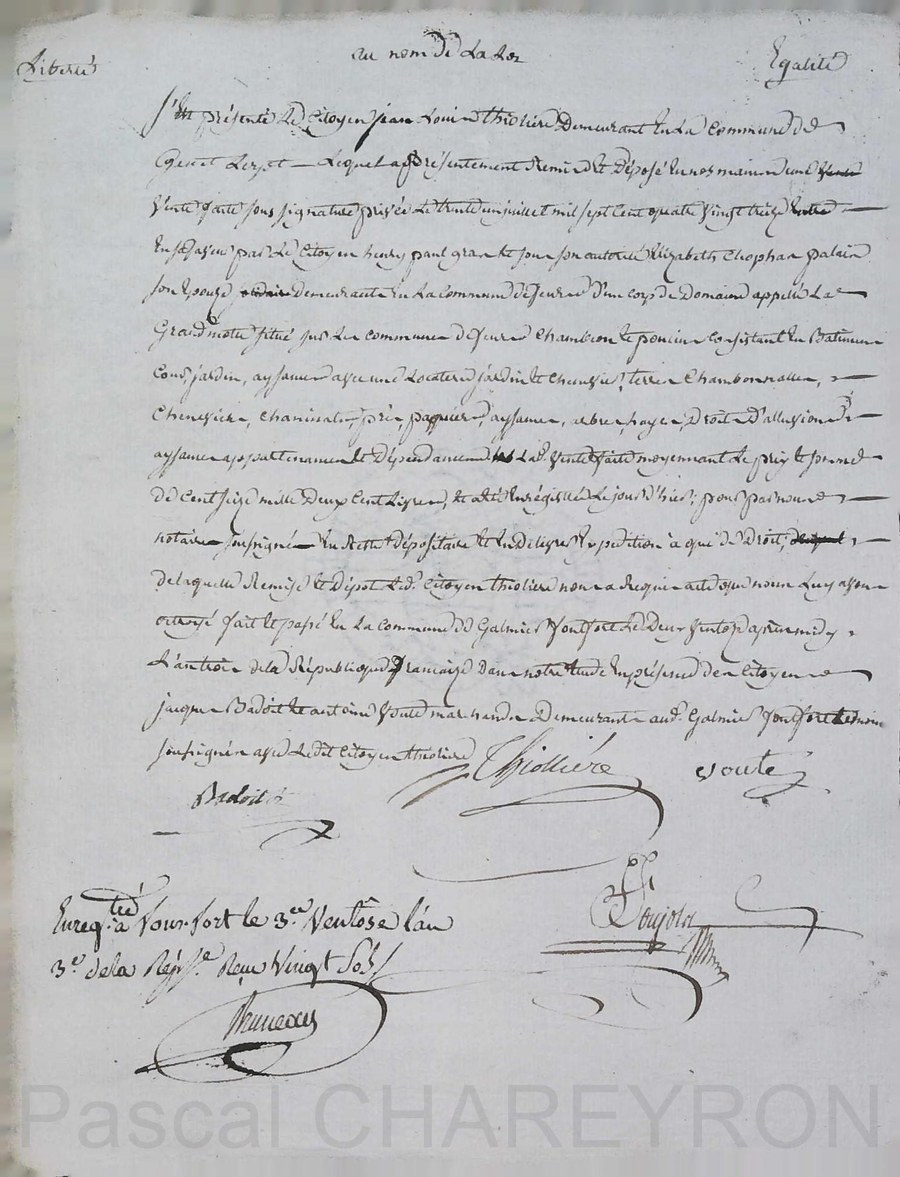 Liberté au nom de La Loi Egalité
S'est présenté Le Citoyen jean Louis thiolière Demeurant en La Commune de
Lequel a présentement Remis et Déposé en nos mains une
Vente faite sous signature privée Le trente un juillet mil sept Cent quatre Vingt treize
En sa faveur par Le Citoyen henry paul grand et sous son autorité Elizabeth palais
son Epouse, Demeurants en La Commune de feurs d'un corps de Domaine appellé La
Grand motte situé sur Les communes de feurs Chambéon et poncins Consistant en Batiments
Cour, jardin, aysances avec une Locaterie jardin et terres Chambonnalles,
Chenevière, prés, paquiers, aysances, arbres, hayes, Droits D'allusion et
aysances appartenances et Dépendances Lad. Vente faite moyennant Le prix et somme
De Cent Seize mille Deux Cent Livres, et a été Enrégistrée Le jour d'hier; pour par nous
notaire soussigné En Rester dépositaire et En Delivrer Expedition à qui de Droit,
de laquelle Remise et Dépot Led. Citoyen thiolière nous a Requis acte que nous Luy avons
octroyé fait et passé En La Commune de Galmier fontfort Le Deux Ventose après midy
L'an trois de la République francaise Dans notre étude En présence des Citoyens
jacques Badoit et antoine Voute marchands Demeurants aud. Galmier fontfort témoins
soussignés avec Ledit Citoyen thiolière
Thiollière Voute
Badoit
Enregtré à fonfort le 3e. Ventôse l'an
3e. de la Repse. Reçu Vingt Sols